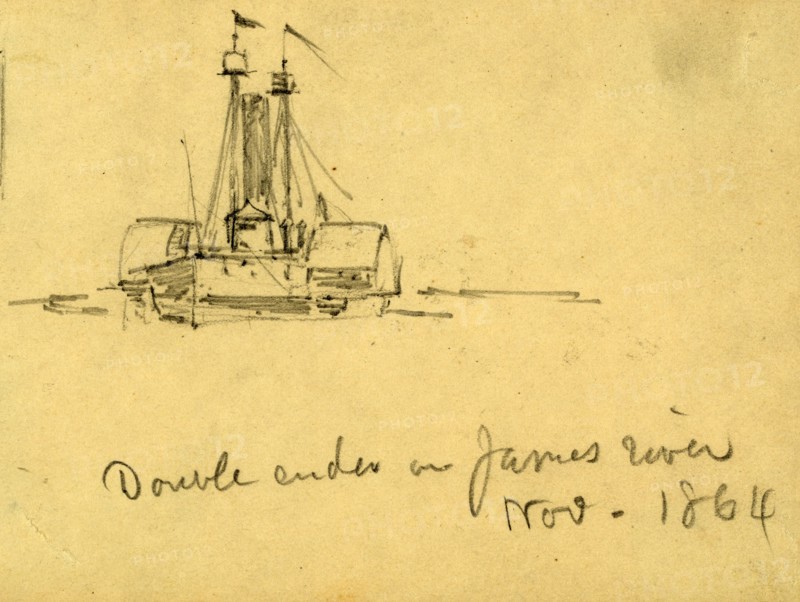 Double ender on James river
Nov - 1864
PHOTO12